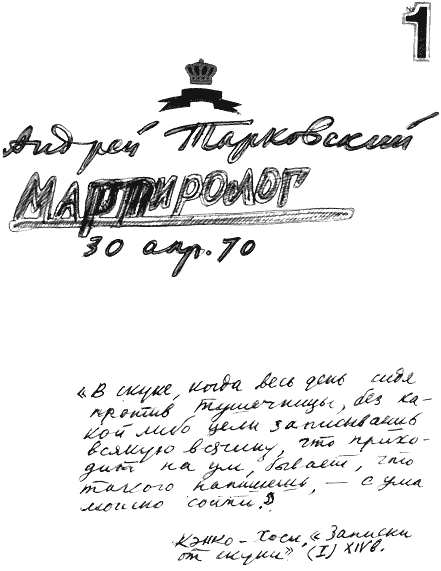 № 1
Андрей Тарковский
МАРТИРОЛОГ
30 апр. 70
«В скуке, когда весь день сидя
против тушечницы, без ка-
кой либо цели записываешь
всякую всячину, что прихо-
дит на ум, бывает, что
такого напишешь, — с ума
можно сойти.»
Кэнко-Хоси, «Записки
от скуки» (I) XIV в.